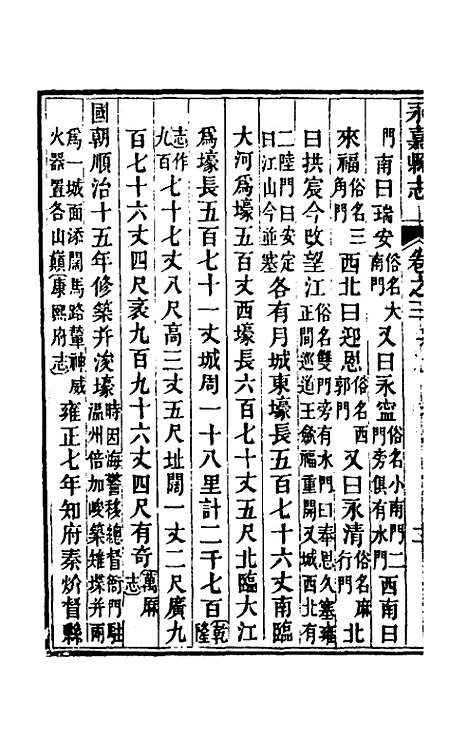 永嘉縣志
卷之三
門南曰瑞安俗名大南門又曰永寧俗名小南門二門旁俱有水門西南曰
來福俗名三角門西北曰迎恩俗名西郭門又曰永清俗名麻行門北
曰拱宸今改望江俗名雙門旁有水門曰奉恩久塞雍正間巡道王斂福重開又城西北有
二陸門曰安定曰江山今並塞各有月城東壕長五百七十六丈南臨
大河爲壕五百丈西壕長六百七十丈五尺北臨大江
爲壕長五百七十一丈城周一十八里計二千七百乾隆
志作九百七十七丈八尺高三丈五尺址闊一丈二尺廣九
百七十六丈四尺袤九百九十六丈四尺有奇萬厤志
國朝順治十五年修築并浚壕時因海警移總督衙門駐溫州倍加峻築雉堞并兩
爲一城面添闊馬路輦神威火器置各山巔康熙府志雍正七年知府秦炌督縣